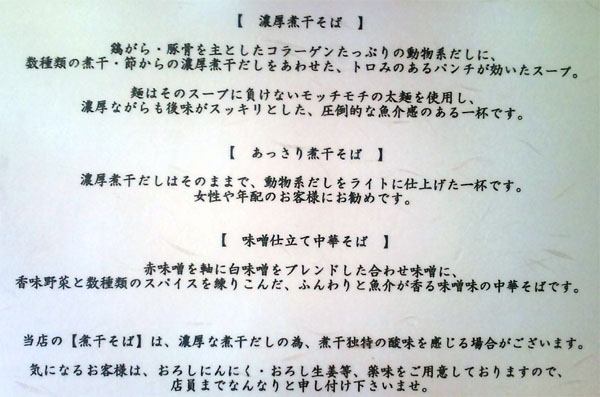 【 濃厚煮干そば 】
鶏がら・豚骨を主としたコラーゲンたっぷりの動物系だしに、
数種類の煮干・節からの濃厚煮干だしをあわせた、トロみのあるパンチが効いたスープ。
麺はそのスープに負けないモッチモチの太麺を使用し、
濃厚ながらも後味がスッキリとした、圧倒的な魚介感のある一杯です。
【 あっさり煮干そば 】
濃厚煮干だしはそのままで、動物系だしをライトに仕上げた一杯です。
女性や年配のお客様にお勧めです。
【 味噌仕立て中華そば 】
赤味噌を軸に白味噌をブレンドした合わせ味噌に、
香味野菜と数種類のスパイスを練りこんだ、ふんわりと魚介が香る味噌味の中華そばです。
当店の【煮干そば】は、濃厚な煮干だしの為、煮干独特の酸味を感じる場合がございます。
気になるお客様は、おろしにんにく・おろし生姜等、薬味をご用意しておりますので、
店員までなんなりと申し付け下さいませ。